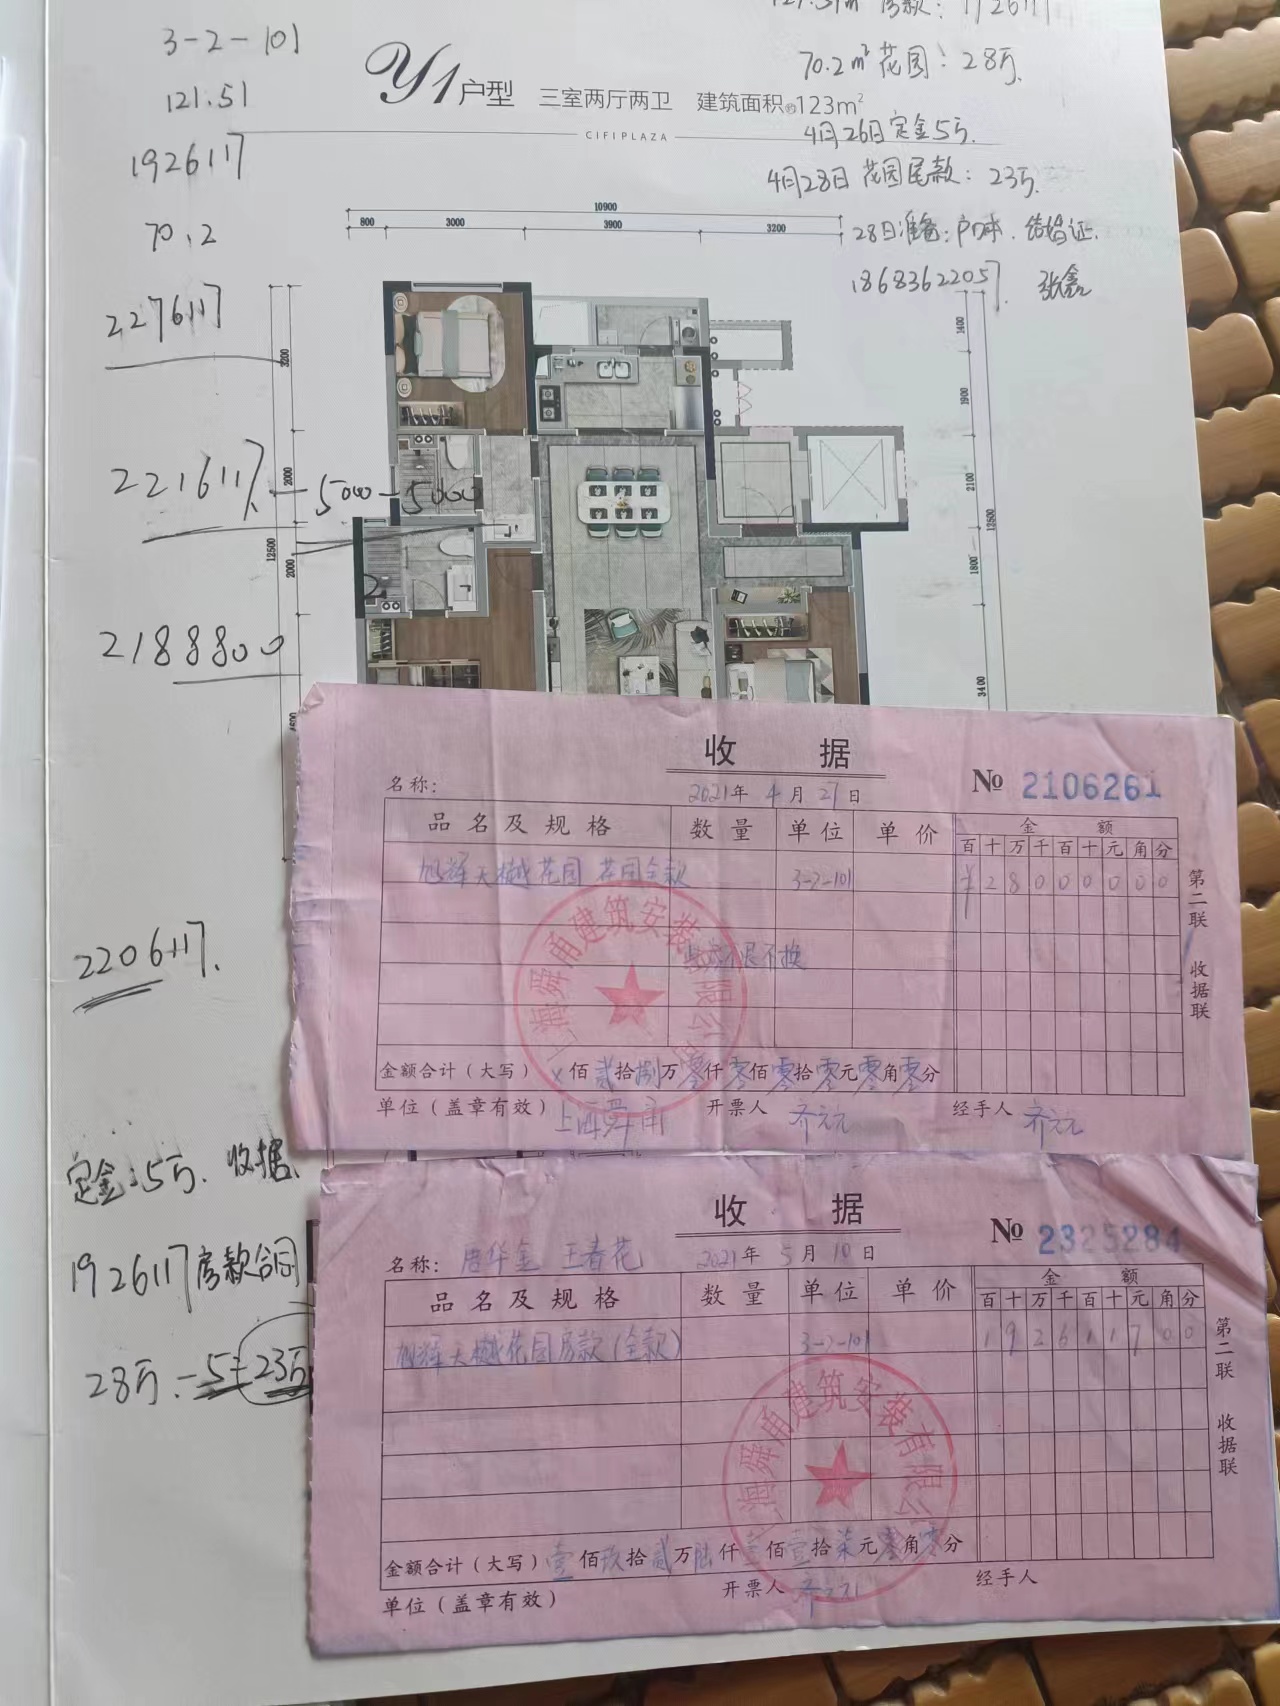 121.51㎡房款：1926117
3-2-101
70.2㎡花园：28万.
121.51
Y1户型 三室两厅两卫 建筑面积约123m²
CIFI PLAZA
4月26日定金5万.
1926117
4月28日花园尾款：23万.
70.2
28日准备：户口本.结婚证.
18683622057. 张鑫
10900
800 3000 3900 3200
2276117
3200
1400
1900
2216117. -5000-5000
2000
2100
12500
12500
2000
1800
2188800
3400
2206117.
定金：5万. 收据.
1926117房款合同
28万.-5=23万
收 据
№ 2106261
名称：
2021年 4月 27日
品名及规格 数量 单位 单价 金额
百十万千百十元角分
旭辉天樾花园 花园全款 3-2-101 ¥28000000
不退不换
第二联 收据联
金额合计（大写） ×佰贰拾捌万零仟零佰零拾零元零角零分
单位（盖章有效） 上海舜甬 开票人 齐元元 经手人 齐元元
上海舜甬建筑安装有限公司
收 据
№ 2325284
名称： 唐华金 王春花 2021年 5月 10日
品名及规格 数量 单位 单价 金额
百十万千百十元角分
旭辉天樾花园房款（全款） 3-2-101 192611700
第二联 收据联
金额合计（大写） 壹佰玖拾贰万陆仟壹佰壹拾柒元零角零分
单位（盖章有效） 开票人 齐元元 经手人
上海舜甬建筑安装有限公司